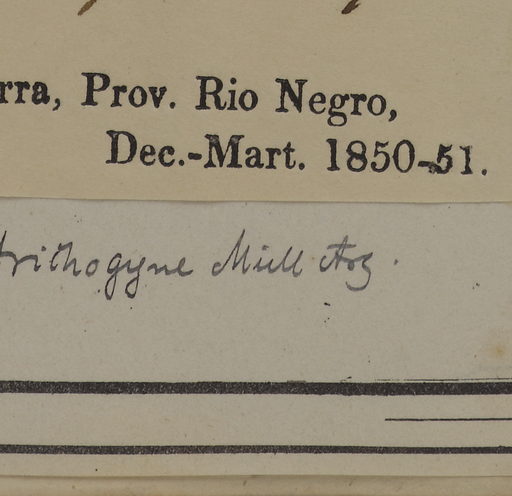 rra, Prov. Rio Negro,
Dec.-Mart. 1850-51.
trichogyne Müll Arg.